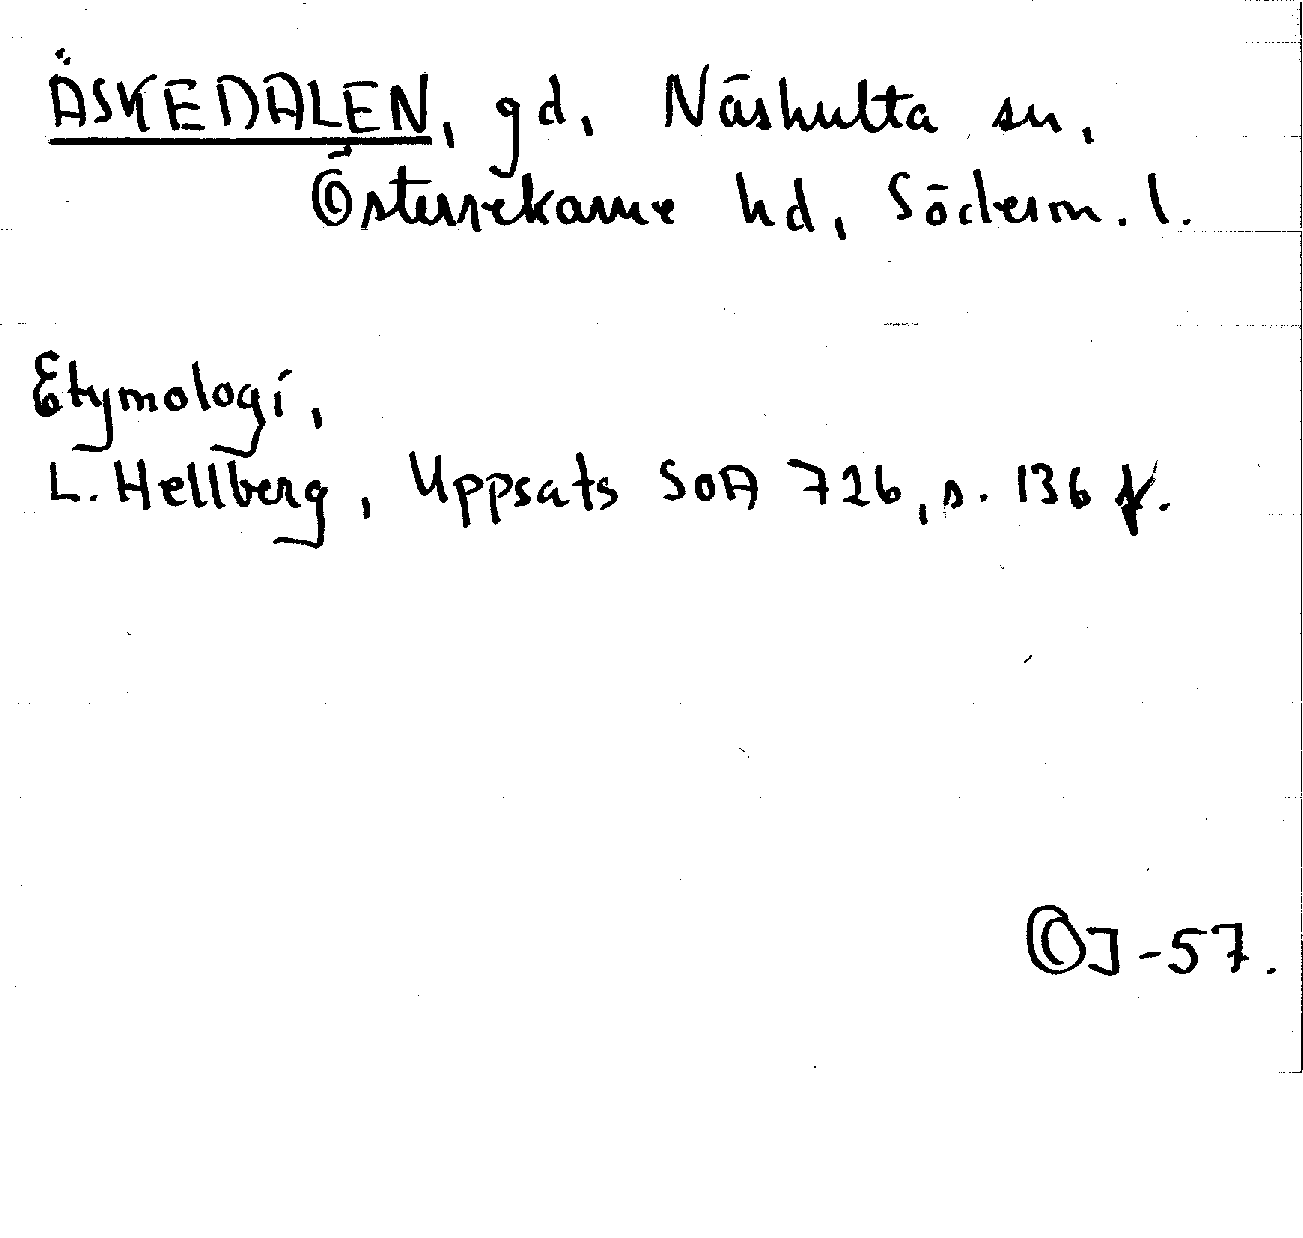 ÄSKEDALEN, gd, Näshulta sn,
Österrekarne hd, Söderm. l.
Etymologi,
L. Hellberg, Uppsats SOA 726, s. 136 f.
OJ-57.